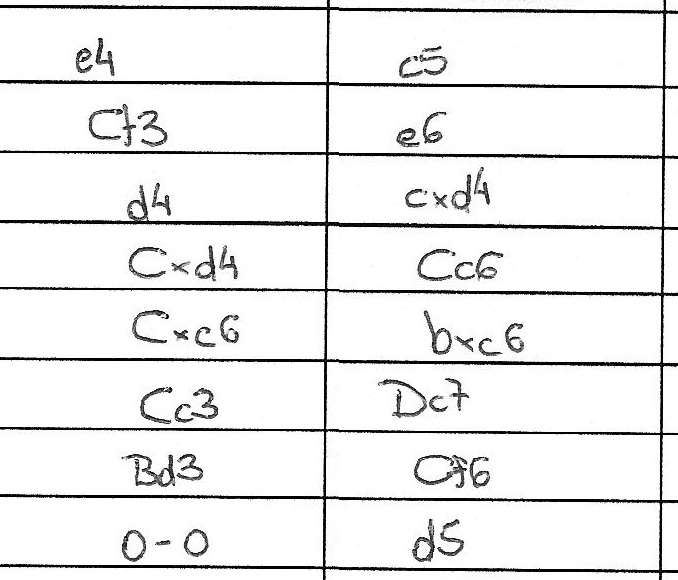 e4 c5
Cf3 e6
d4 cxd4
Cxd4 Cc6
Cxc6 bxc6
Cc3 Dc7
Bd3 Cf6
0-0 d5